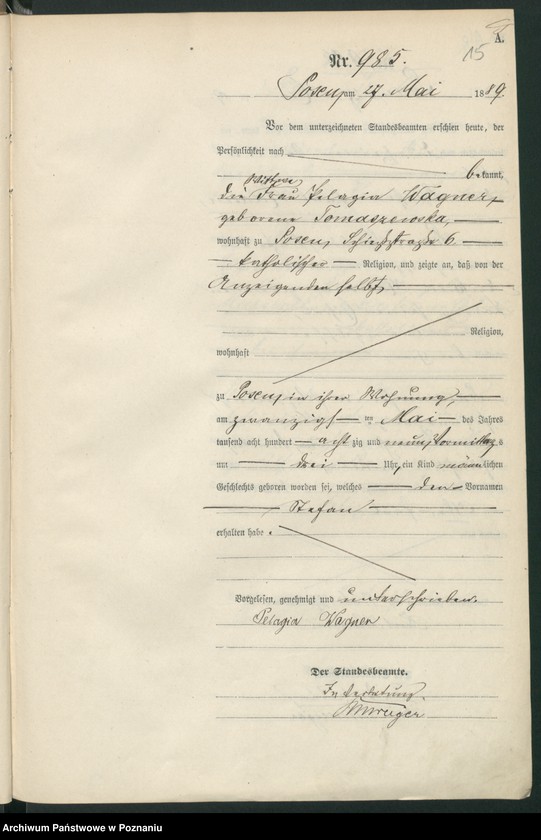 15
A.
Nr. 985.
Posen, am 27. Mai 1889.
Vor dem unterzeichneten Standesbeamten erschien heute, der
Persönlichkeit nach
bekannt,
Wittwe
die Frau Pelagia Wagner,
geborene Tomaszewska,
wohnhaft zu Posen, 6
katholischer Religion, und zeigte an, daß von der
Anzeigenden selbst,
Religion,
wohnhaft
zu Posen, in ihrer Wohnung,
am zwanzigsten Mai des Jahres
tausend acht hundert achtzig und neun, Vormittags
um drei Uhr, ein Kind männlichen
Geschlechts geboren worden sei, welches den Vornamen
Stefan
erhalten habe.
Vorgelesen, genehmigt und unterschrieben.
Pelagia Wagner
Der Standesbeamte.
In Vertretung.
Archiwum Państwowe w Poznaniu